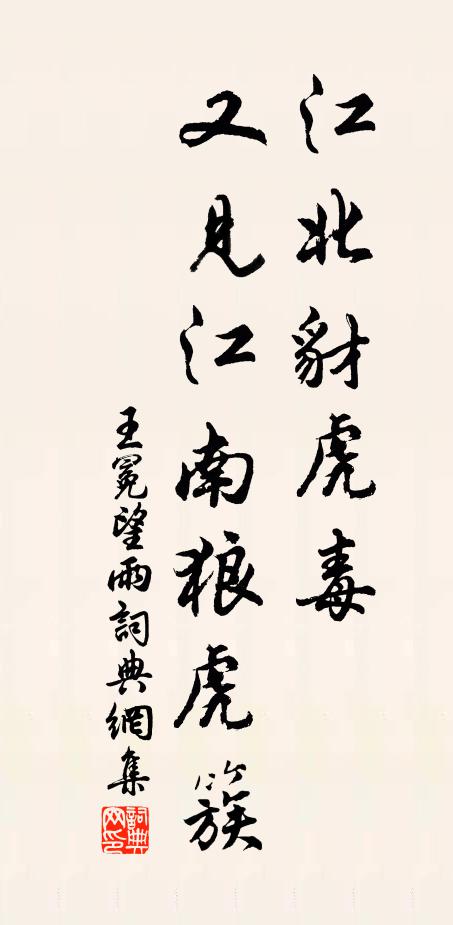 江北豺虎毒
又見江南狼虎簇
王冕望雨詞典網集
詞典網印